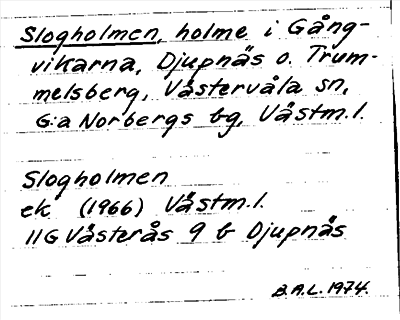 Slogholmen, holme i Gång-
vikarna, Djupnäs o. Trum-
melsberg, Västervåla sn,
G:a Norbergs bg, Västm.l.
Slogholmen
ek (1966) Västm.l.
11G Västerås 9 b Djupnäs
B.A.L. 1974.